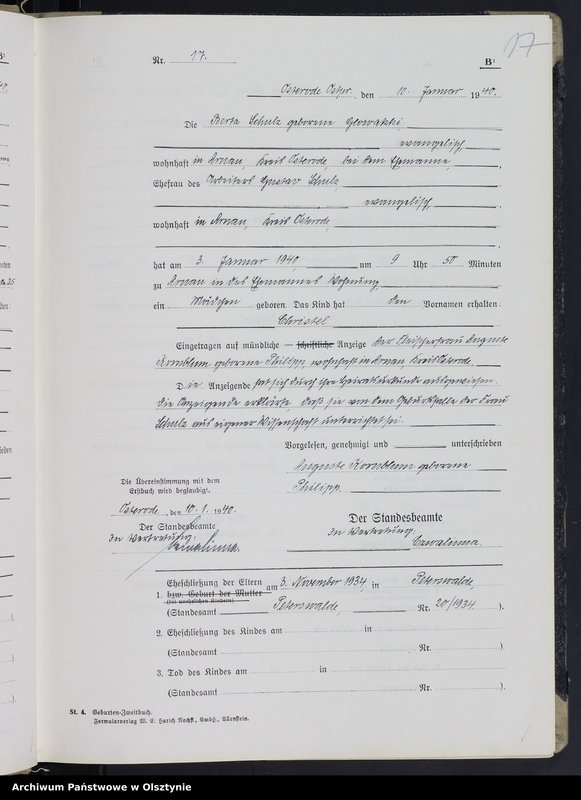 17
Nr. 17.
B¹
Osterode Ostpr., den 10. Januar 1940.
Die Berta Schulz geborene Glowatzki,
evangelisch,
wohnhaft in Arnau, Kreis Osterode, bei dem Ehemanne,
Ehefrau des Arbeiters Gustav Schulz
, evangelisch,
wohnhaft in Arnau, Kreis Osterode,
hat am 3. Januar 1940, um 9 Uhr 50 Minuten
zu Arnau in des Ehemannes Wohnung,
ein Mädchen geboren. Das Kind hat den Vornamen erhalten:
Christel
Eingetragen auf mündliche — schriftliche Anzeige der Fleischerfrau Auguste
Kornblum geborene Philipp, wohnhaft in Arnau, Kreis Osterode.
Die Anzeigende hat sich durch ihre Heiratsurkunde ausgewiesen.
Die Anzeigende erklärte, daß sie von dem Geburtsfalle der Frau
Schulz aus eigener Wissenschaft unterrichtet sei.
Vorgelesen, genehmigt und unterschrieben
Auguste Kornblum geborene
Philipp.
Die Übereinstimmung mit dem
Erstbuch wird beglaubigt.
Osterode, den 10. 1. 1940.
Der Standesbeamte
In Vertretung:
Czwalinna.
Der Standesbeamte
In Vertretung:
Czwalinna.
1. Eheschließung der Eltern
bzw. Geburt der Mutter
(bei unehelichen Kindern)
am 3. November 1934, in Peterswalde,
(Standesamt Peterswalde, Nr. 20/1934 ).
2. Eheschließung des Kindes am in
(Standesamt Nr. ).
3. Tod des Kindes am in
(Standesamt Nr. ).
St. 4. Geburten-Zweitbuch.
Formularverlag W. E. Harich Nachf., GmbH., Allenstein.
Archiwum Państwowe w Olsztynie